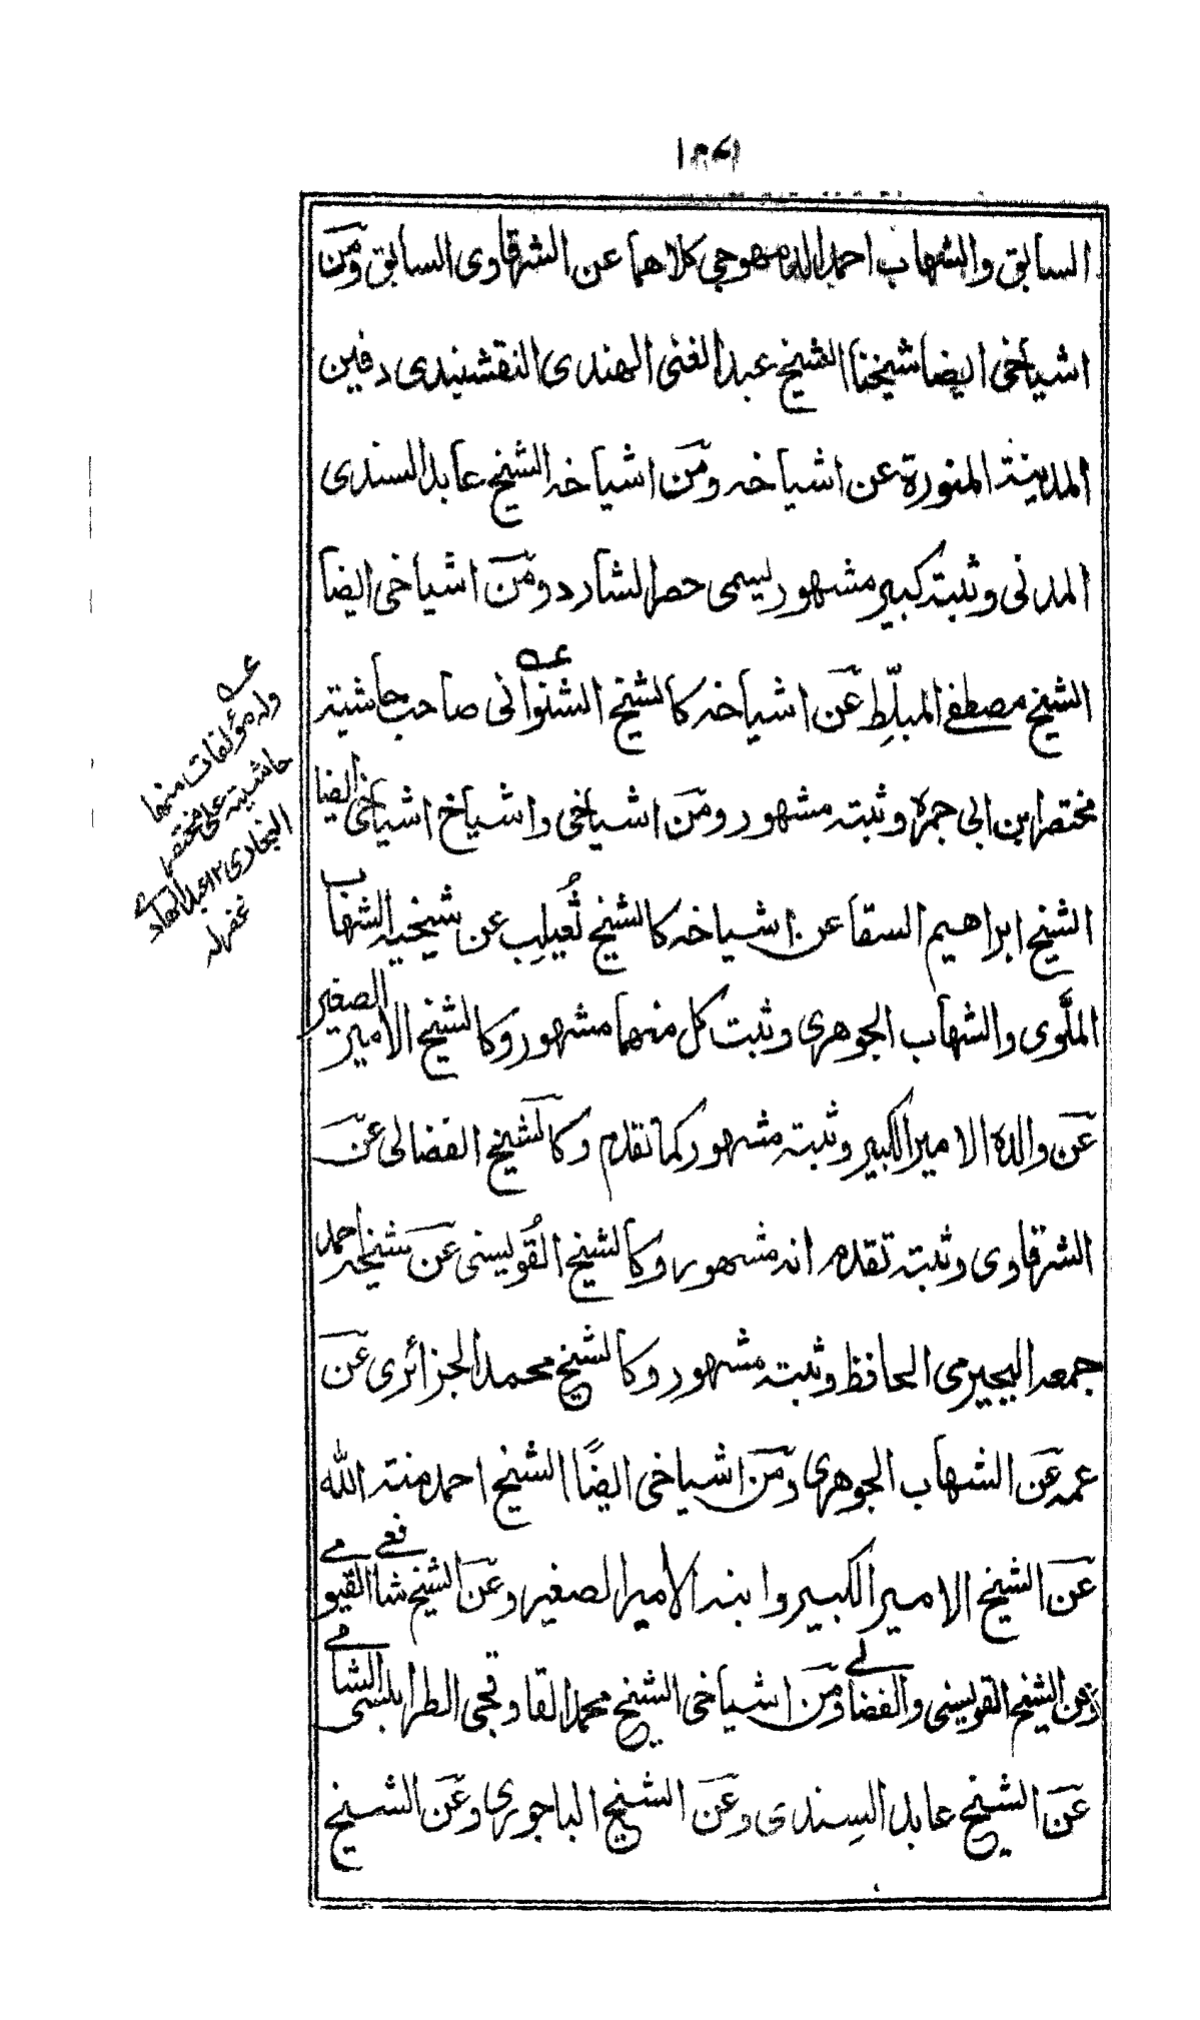 السابق والشهاب احمد الدمهوجي كلاهما عن الشرقاوى السابق ومن
اشياخى ايضا شيخنا الشيخ عبد الغنى الهندى النقشبندى دفين
المدينة المنورة عن اشياخه ومن اشياخه الشيخ عابد السندى
المدنى وثبته كبير مشهور يسمى حصر الشارد ومن اشياخى ايضا
الشيخ مصطفے المبلّط عن اشياخه كالشيخ الشنوانى صاحب حاشية
مختصر ابن ابى جمرة وثبته مشهور ومن اشياخى واشياخ اشياخى ايضا
الشيخ ابراهيم السقا عن اشياخه كالشيخ ثُعيلِب عن شيخيه الشهاب
الملَّوى والشهاب الجوهرى وثبت كل منهما مشهور وكالشيخ الامير الصغير
عن والده الامير الكبير وثبته مشهور كما تقدم وكالشيخ الفضالى عن
الشرقاوى وثبته تقدم انه مشهور وكالشيخ القُويسنى عن شيخه احمد
جمعه البجيرمى الحافظ وثبته مشهور وكالشيخ محمد الجزائرى عن
عمه عن الشهاب الجوهرى ومن اشياخى ايضًا الشيخ احمد منة الله
عن الشيخ الامير الكبير وابنه الامير الصغير وعن الشيخ شافعے الفيومے
وعن الشيخ القويسنى والفضالے ومن اشياخى الشيخ محمد القاوقجى الطرابلسى الشامے
عن الشيخ عابد السِندى وعن الشيخ الباجورى وعن الشيخ
عـه
وله مؤلفات منها
حاشية على مختصر
البخارى ١٢ عبد الهادے
غفر له